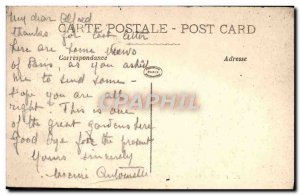 My dear Alfred
CARTE POSTALE - POST CARD
Thanks for last letter
Correspondance
Adresse
here are some views
of Paris as you asked
me to send some -
Hope you are all
right. This is one
of the great gardens here
Good bye for the present
Yours sincerely
FRANCE